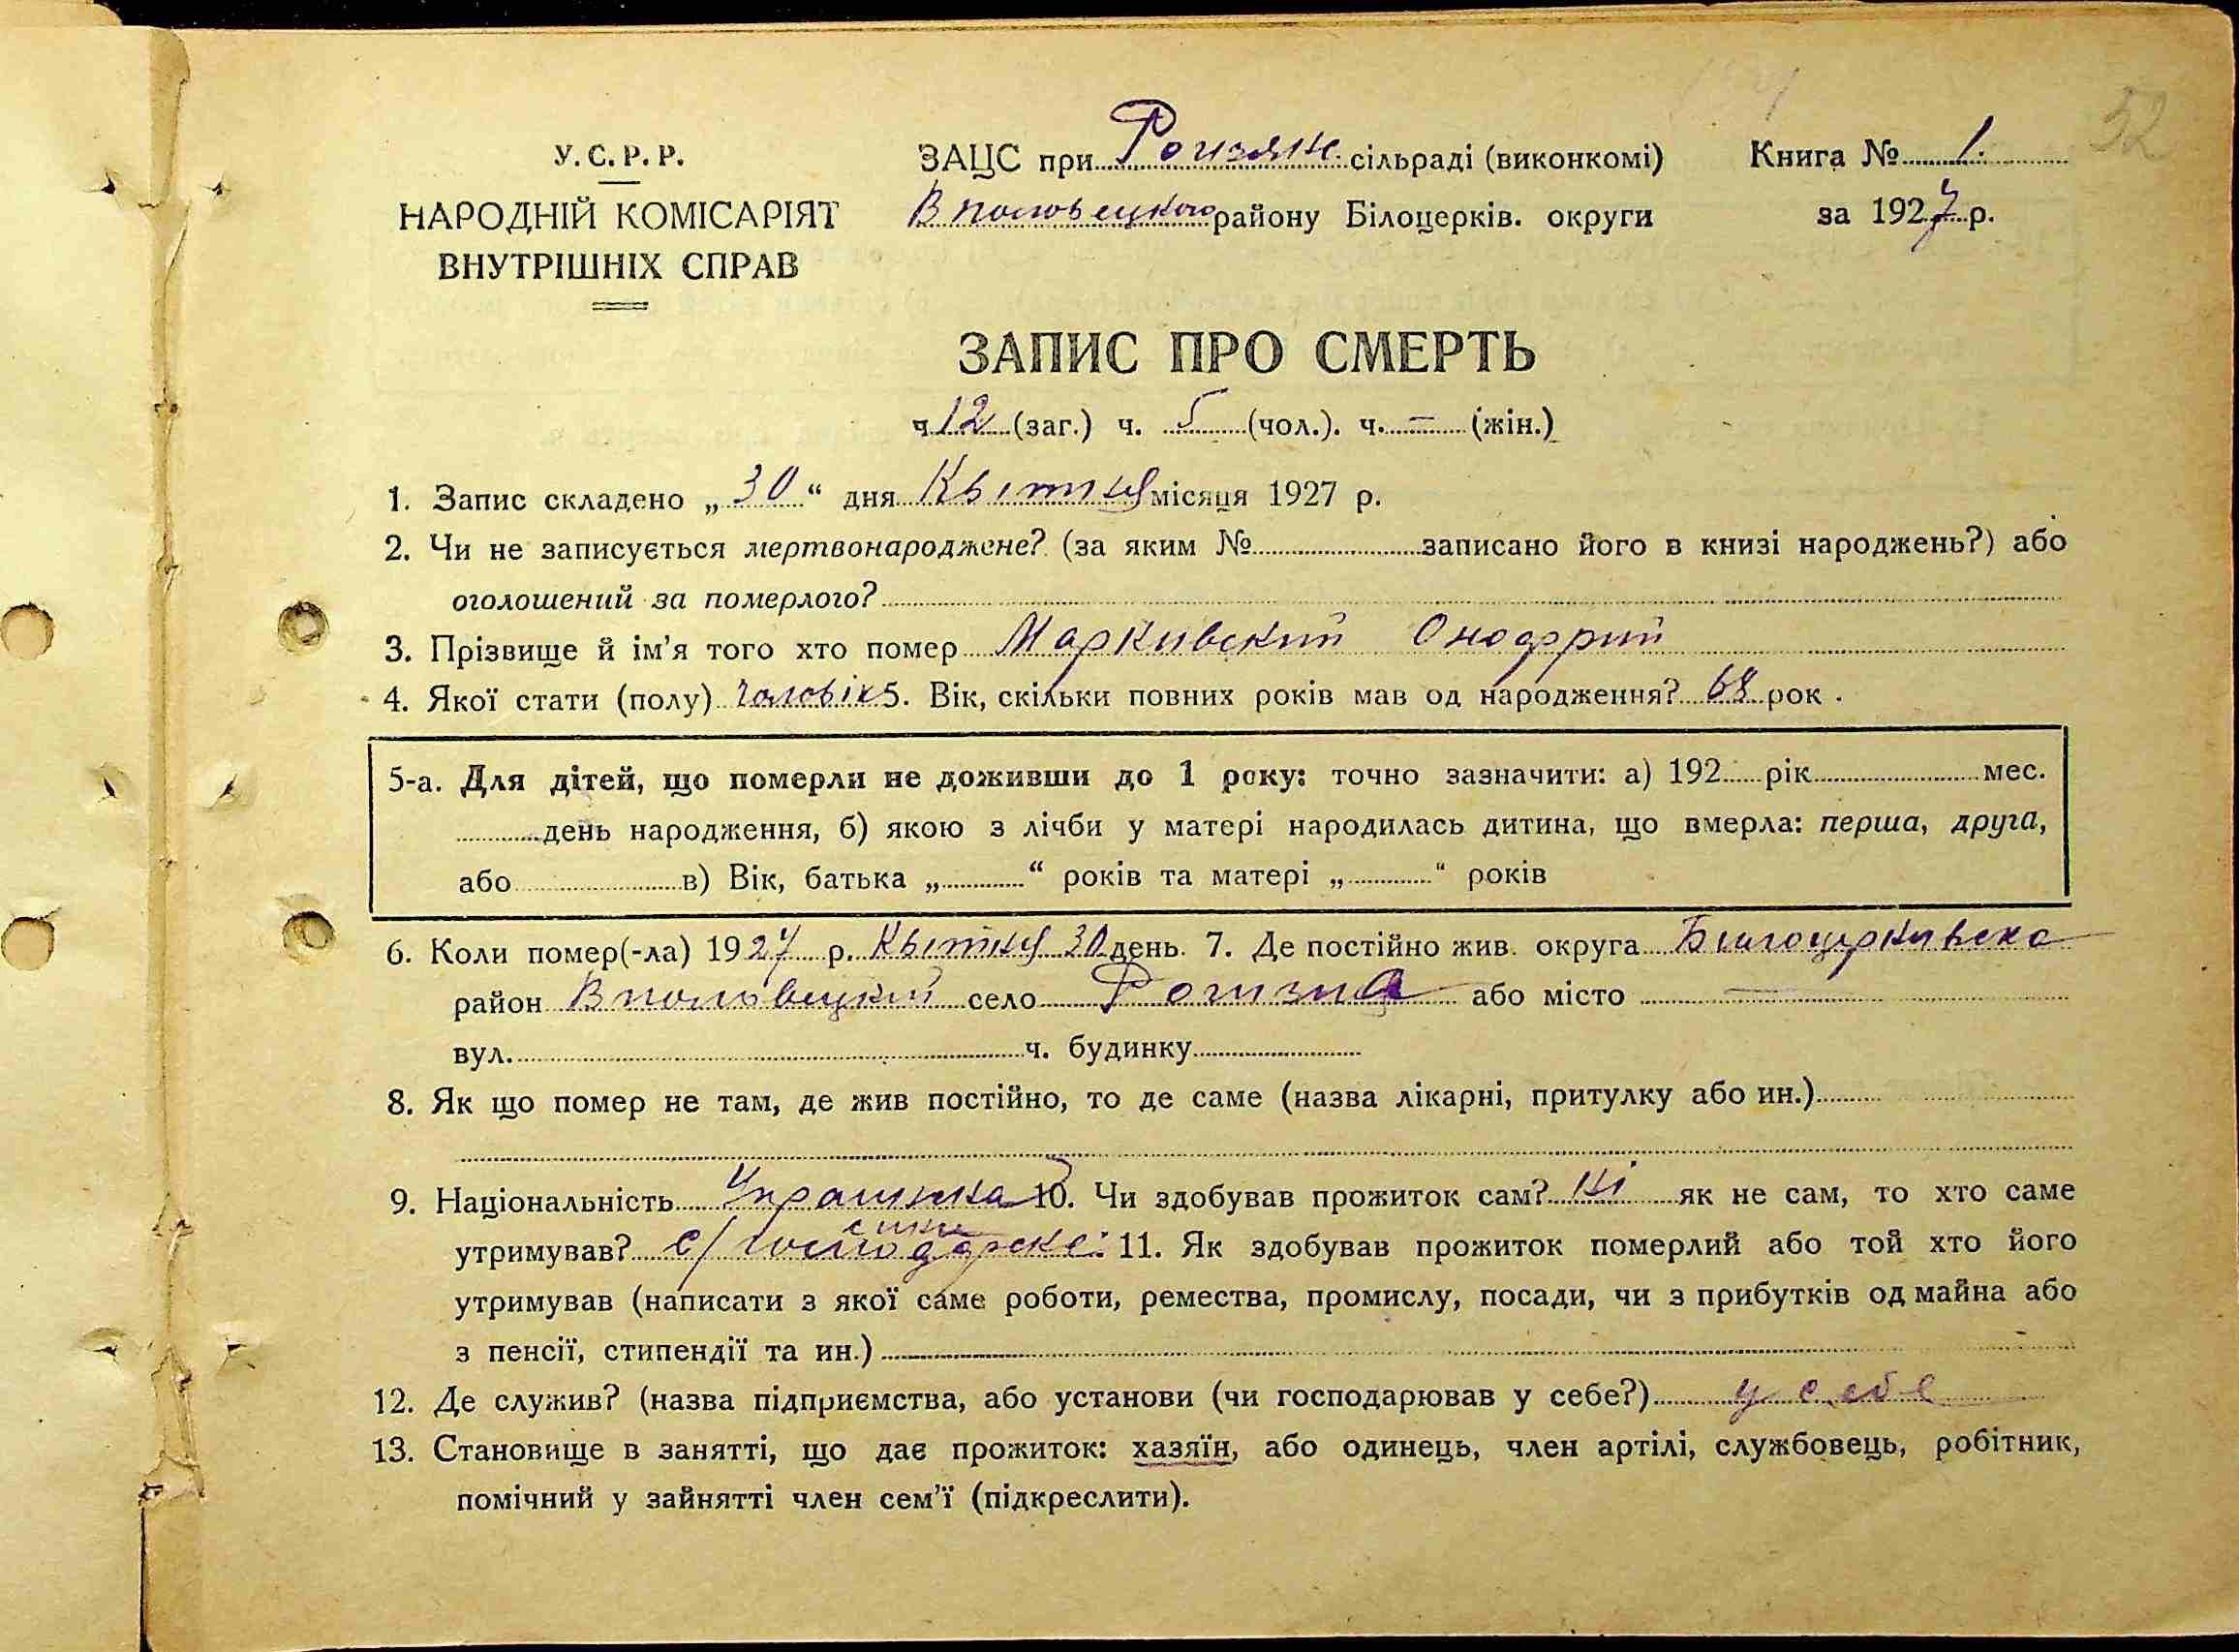 52
У. С. Р. Р.
НАРОДНІЙ КОМІСАРІЯТ
ВНУТРІШНІХ СПРАВ
ЗАЦС при Рогизян. сільраді (виконкомі)
Вполовецького району Білоцерків. округи
Книга № 1.
за 1927 р.
ЗАПИС ПРО СМЕРТЬ
ч 12 (заг.) ч. 5 (чол.). ч. — (жін.)
1. Запис складено „ 30 “ дня Квітня місяця 1927 р.
2. Чи не записується мертвонароджене? (за яким № записано його в книзі народжень?) або
оголошений за померлого?
3. Прізвище й ім'я того хто помер Маркивский Онофрий
4. Якої стати (полу) чоловік 5. Вік, скільки повних років мав од народження? 68 рок .
5-а. Для дітей, що померли не доживши до 1 року: точно зазначити: а) 192 рік мес.
день народження, б) якою з лічби у матері народилась дитина, що вмерла: перша, друга,
або в) Вік, батька „ “ років та матері „ “ років
6. Коли помер(-ла) 1927 р. Квітня 30 день. 7. Де постійно жив. округа Билоцеркивска
район Вполовецкий село Рогизна або місто —
вул. ч. будинку
8. Як що помер не там, де жив постійно, то де саме (назва лікарні, притулку або ин.)
9. Національність 10. Чи здобував прожиток сам? ні як не сам, то хто саме
утримував? с/господарске 11. Як здобував прожиток померлий або той хто його
утримував (написати з якої саме роботи, ремества, промислу, посади, чи з прибутків од майна або
з пенсії, стипендії та ин.)
12. Де служив? (назва підприємства, або установи (чи господарював у себе?) у себе
13. Становище в занятті, що дає прожиток: хазяїн, або одинець, член артілі, службовець, робітник,
помічний у зайнятті член сем'ї (підкреслити).